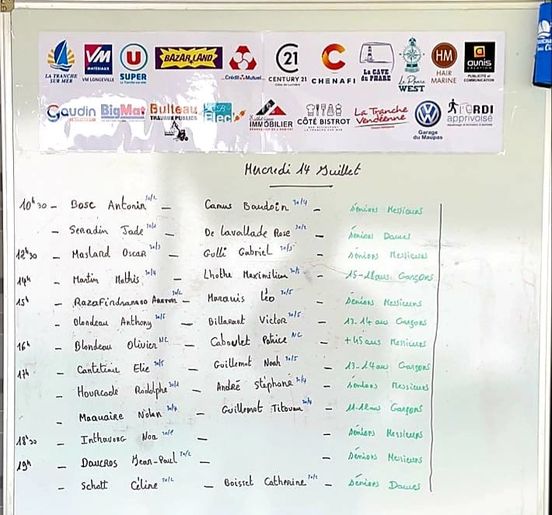 LA TRANCHE SUR MER VM MATÉRIAUX VM LONGEVILLE U SUPER BAZARLAND Crédit Mutuel C21 CENTURY 21 CHENAFI LA CAVE du PHARE Le Phare WEST HM HAIR MARINE aunis PUBLICITÉ et COMMUNICATION
Gaudin BigMat Bulteau TRAVAUX PUBLICS Elec IMMOBILIER CÔTÉ BISTROT La Tranche Vendéenne Garage du Maupas ORDI apprivoisé
Mercredi 14 Juillet
10h30 - Bosc Antonin 30/2 - Camus Baudoin 30/4 - Séniors Messieurs
- Senadin Jade - De Lavallade Rose 30/2 - Sénior Dames
12h30 - Maslard Oscar 30/3 - Golli Gabriel 30/3 - Séniors Messieurs
14h - Martin Mathis 30/4 - Lhothe Maximilien - 15-18ans Garçons
15h - Marquis Léo 30/5 - Séniors Messieurs
- Blondeau Anthony 30/5 - Billarant Victor 30/5 - 13-14 ans Garçons
16h - Blondeau Olivier NC - Caboulet Patrice NC - +45 ans Messieurs
17h - Canteteau Elie 30/5 - Guillemot Noah 30/5 - 13-14 ans Garçons
- Hourcade Rodolphe - André Stéphane - Séniors Messieurs
- Maquaire Nolan - Guillemot Titouan - 11-12ans Garçons
18h30 - Inthavong Noa - - Séniors Messieurs
19h - Daucros Jean-Paul 30/2 - - Séniors Messieurs
- Schott Céline 30/2 - Boisset Catherine 30/2 - Séniors Dames